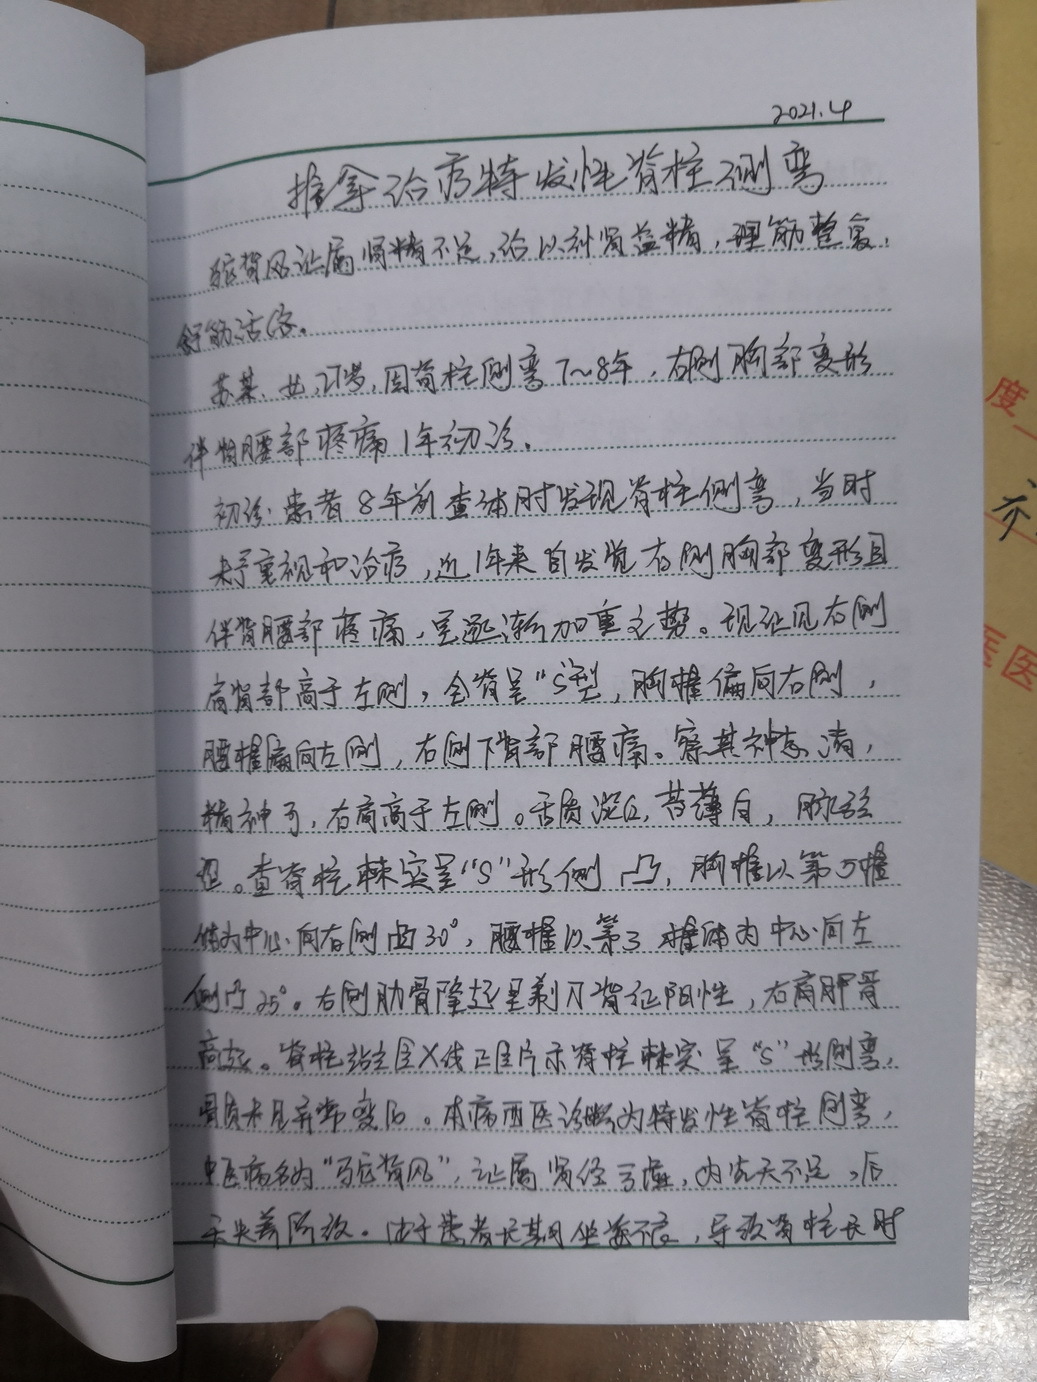 2021.4
推拿治疗特发性脊柱侧弯
驼背风证属肾精不足,治以补肾益精,理筋整复,
舒筋活络。
苏某,女,21岁,因脊柱侧弯7~8年,右侧胸部变形
伴胸腰部疼痛1年初诊。
初诊:患者8年前查体时发现脊柱侧弯,当时
未予重视和治疗,近1年来自发觉右侧胸部变形且
伴背腰部疼痛,呈逐渐加重之势。现证见右侧
肩背部高于左侧,全背呈"S"型,胸椎偏向右侧,
腰椎偏向左侧,右侧下背部腰痛。察其神志清,
精神可,右肩高于左侧。舌质淡红,苔薄白,脉弦
细。查脊柱棘突呈"S"形侧凸,胸椎以第5椎
体为中心向右侧凸30°,腰椎以第3椎体为中心向左
侧凸25°。右侧肋骨隆起呈剃刀背征阳性,右肩胛骨
高起。脊柱站立位X线正位片示脊柱棘突呈"S"形侧弯,
骨质未见异常变化。本病西医诊断为特发性脊柱侧弯,
中医病名为"驼背风",证属肾经亏虚,为先天不足,后
天失养所致。由于患者长期坐姿不良,导致脊柱长时
度一
医医